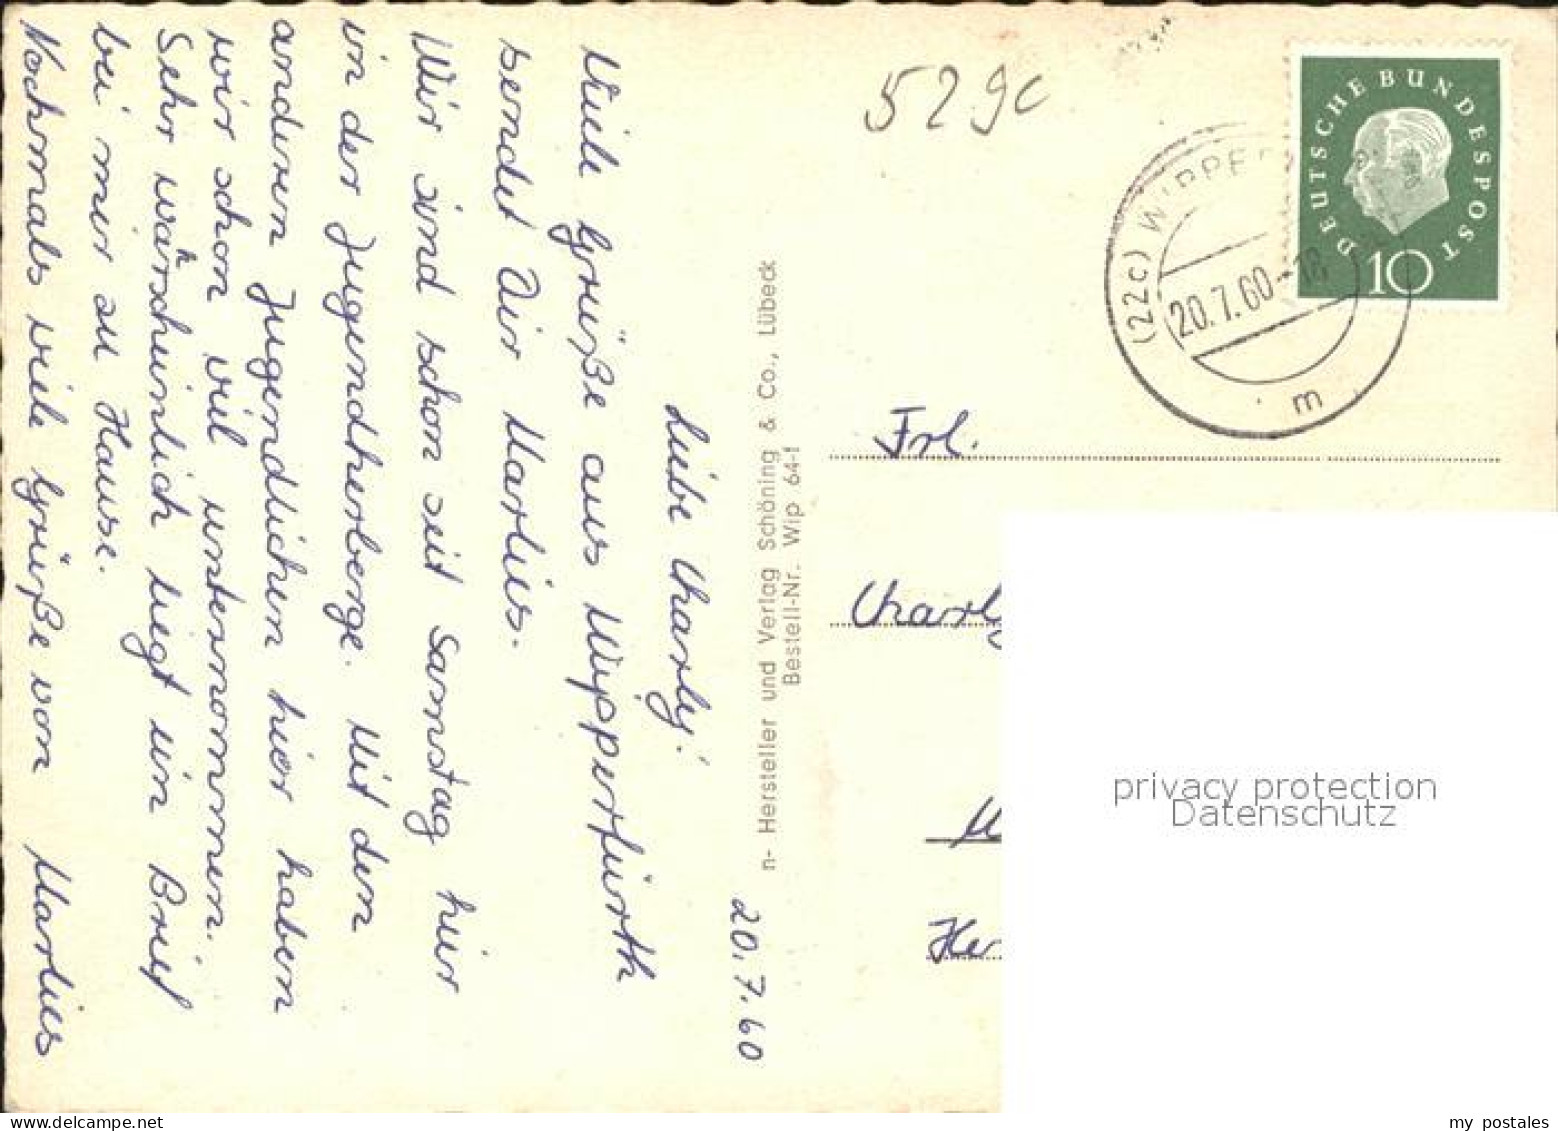 20.7.60
Liebe Charly!
Viele Grüße aus Wipperfürth
sendet Dir Marlies.
Wir sind schon seit Samstag hier
in der Jugendherberge. Mit den
anderen Jugendlichen hier haben
wir schon viel unternommen.
Sehr wahrscheinlich liegt ein Brief
bei mir zu Hause.
Nochmals viele Grüße von Marlies
n- Hersteller und Verlag Schöning & Co., Lübeck
Bestell-Nr. Wip 64-f
529c
DEUTSCHE BUNDESPOST
10
(22c) WIPPE
20.7.60-18
m
Frl.
Charly
M
Her
privacy protection
Datenschutz
my postales